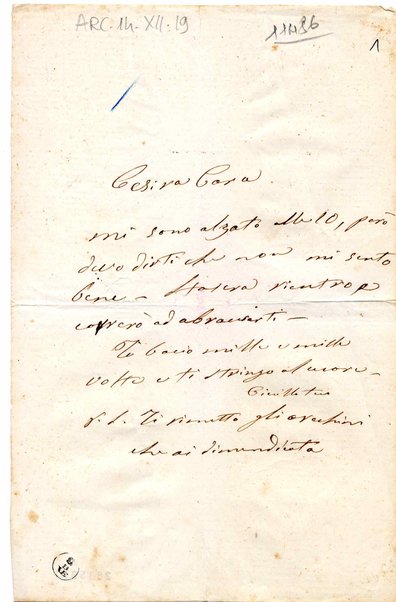 ARC. 14. XII. 19
11486
1
Cesira Cara
mi sono alzato alle 10, però
devo dirti che non mi sento
bene – Stasera rientro e
correrò ad abraciarti –
Te bacio mille e mille
volte e ti stringo al cuore –
p. s. Ti rimetto gli orechini
che ai dimendicata